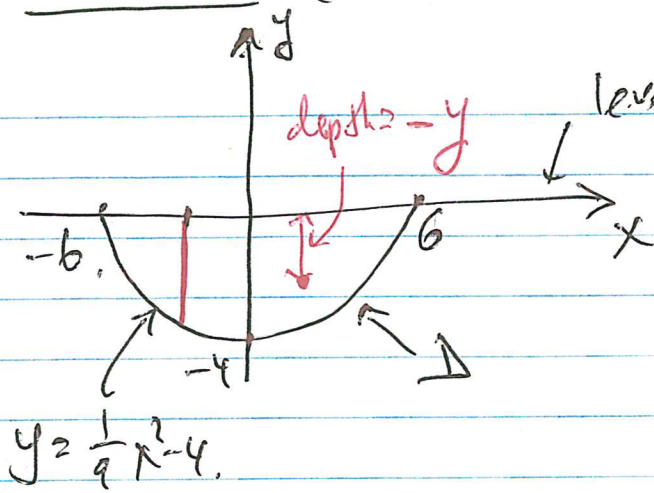 y
depth = -y
x
-6.
6
-4
D
y = 1/9 x² - 4.